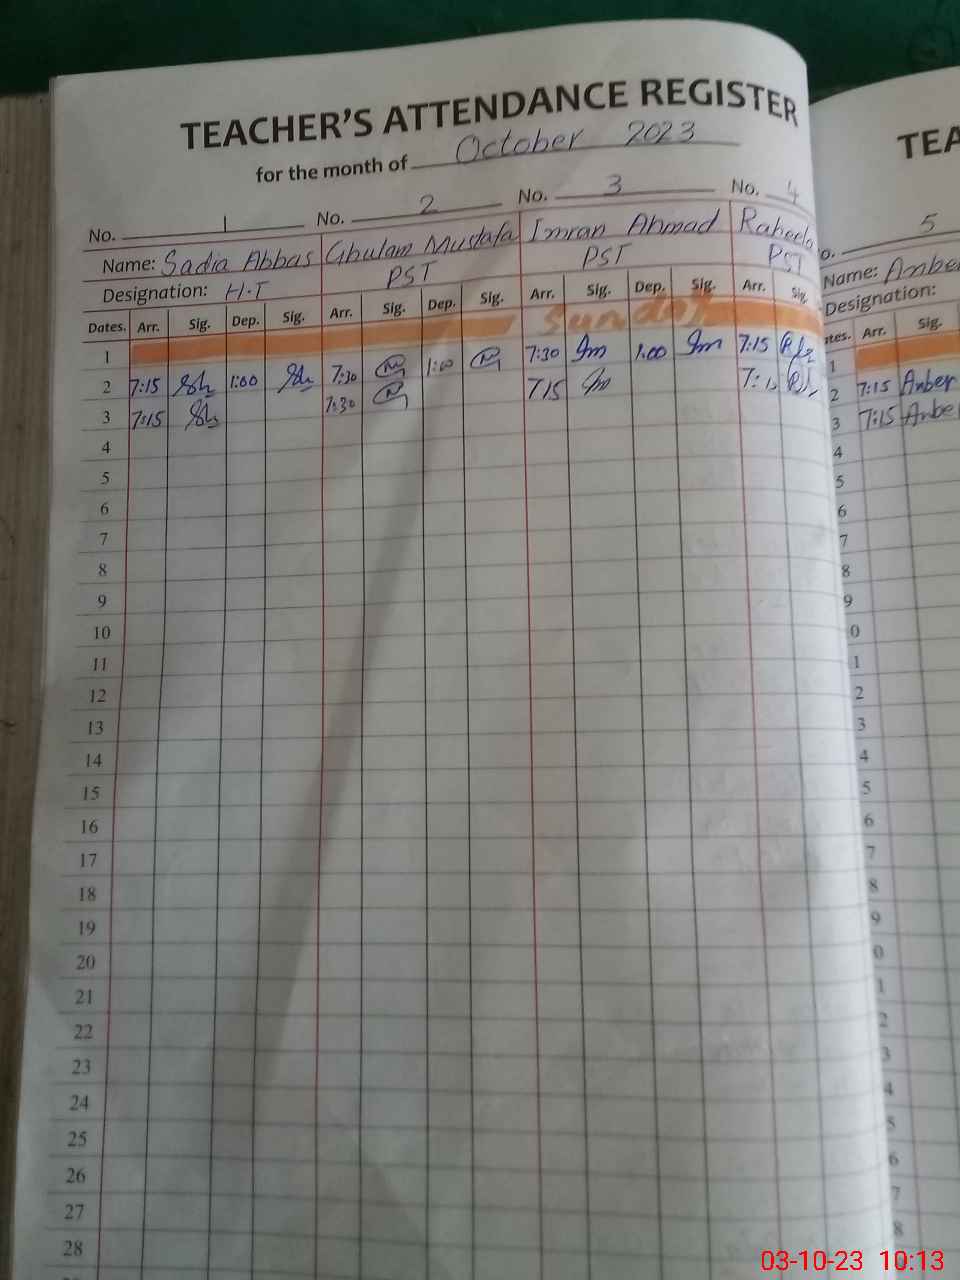 TEACHER'S ATTENDANCE REGISTER
for the month of October 2023
No. 1 No. 2 No. 3 No. 4
Name: Sadia Abbas Ghulam Mustafa Imran Ahmad Raheela
Designation: H.T PST PST PST
Dates. Arr. Sig. Dep. Sig. Arr. Sig. Dep. Sig. Arr. Sig. Dep. Sig. Arr. Sig.
1 Sunday
2 7:15 1:00 7:30 1:00 7:30 1:00 7:15
3 7:15 7:30 7:15
4
5
6
7
8
9
10
11
12
13
14
15
16
17
18
19
20
21
22
23
24
25
26
27
28
TEA
5
Name: Amber
Designation:
Arr. Sig.
1
2 7:15 Amber
3 7:15 Ambe
4
5
6
7
8
9
0
1
2
3
4
5
6
7
8
9
0
1
2
3
4
5
6
7
8
03-10-23 10:13